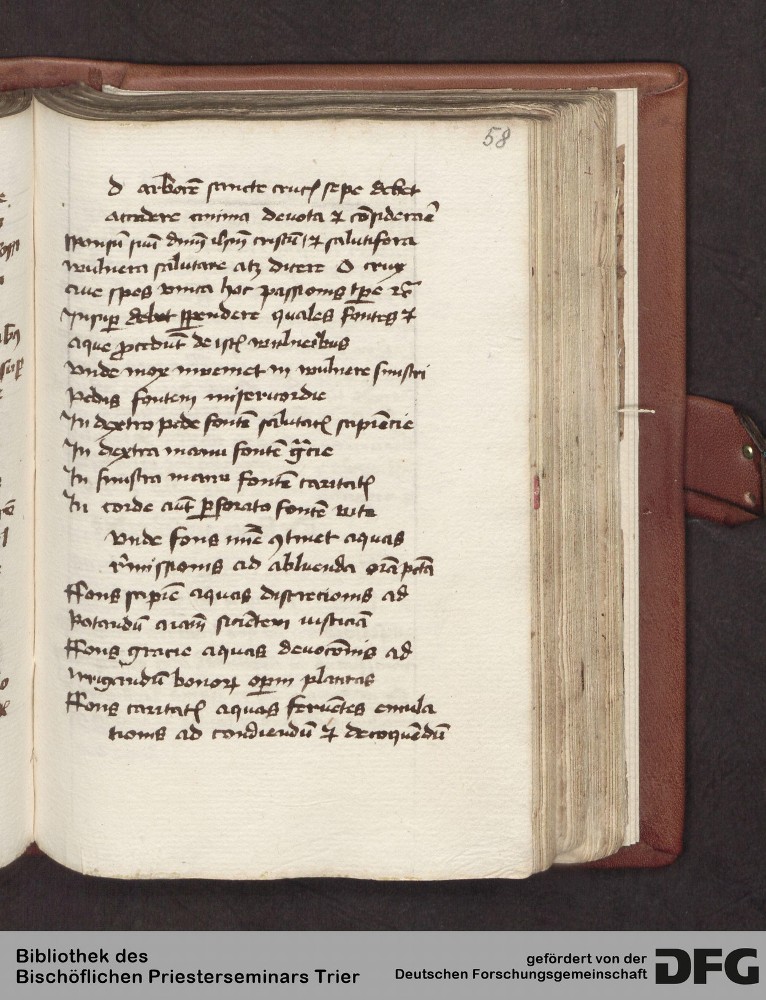 58
d arborē sancte crucꝭ sepe debet
accedere anima devota ⁊ cōsiderare
sponsū suū dnm̄ ihm̄ cristū ⁊ salutifera
wulnera salutare atqꝫ dicere O crux
ave spes unica hoc passionis tp̄e ⁊c̄
Insuꝑ debet ꝑpendere quales fontes ⁊
aque ꝓcedūt de istꝭ wulneribus
vnde mox inveniet in wulnere sinistri
pedis fontem misericordie
In dextro pede fontē salutatꝭ sapiēcie
In dextra manu fontē gr̄acie
In sinistra manu fontē caritatꝭ
In corde aūt ꝑforato fontē vite
vnde fons mīe ꝯtinet aquas
remissionis ad abluenda om̄ia pctā
Ffons sapiē aquas discrecionis ad
potandū aīam sicientem iusticiā
Ffons gracie aquas devocōnis ad
irrigandū bonorꝝ oꝑum plantas
Ffons caritatꝭ aquas ferventes emula
tionis ad condiendū ⁊ decoquendū
Bibliothek des
Bischöflichen Priesterseminars Trier
gefördert von der
Deutschen Forschungsgemeinschaft
DFG